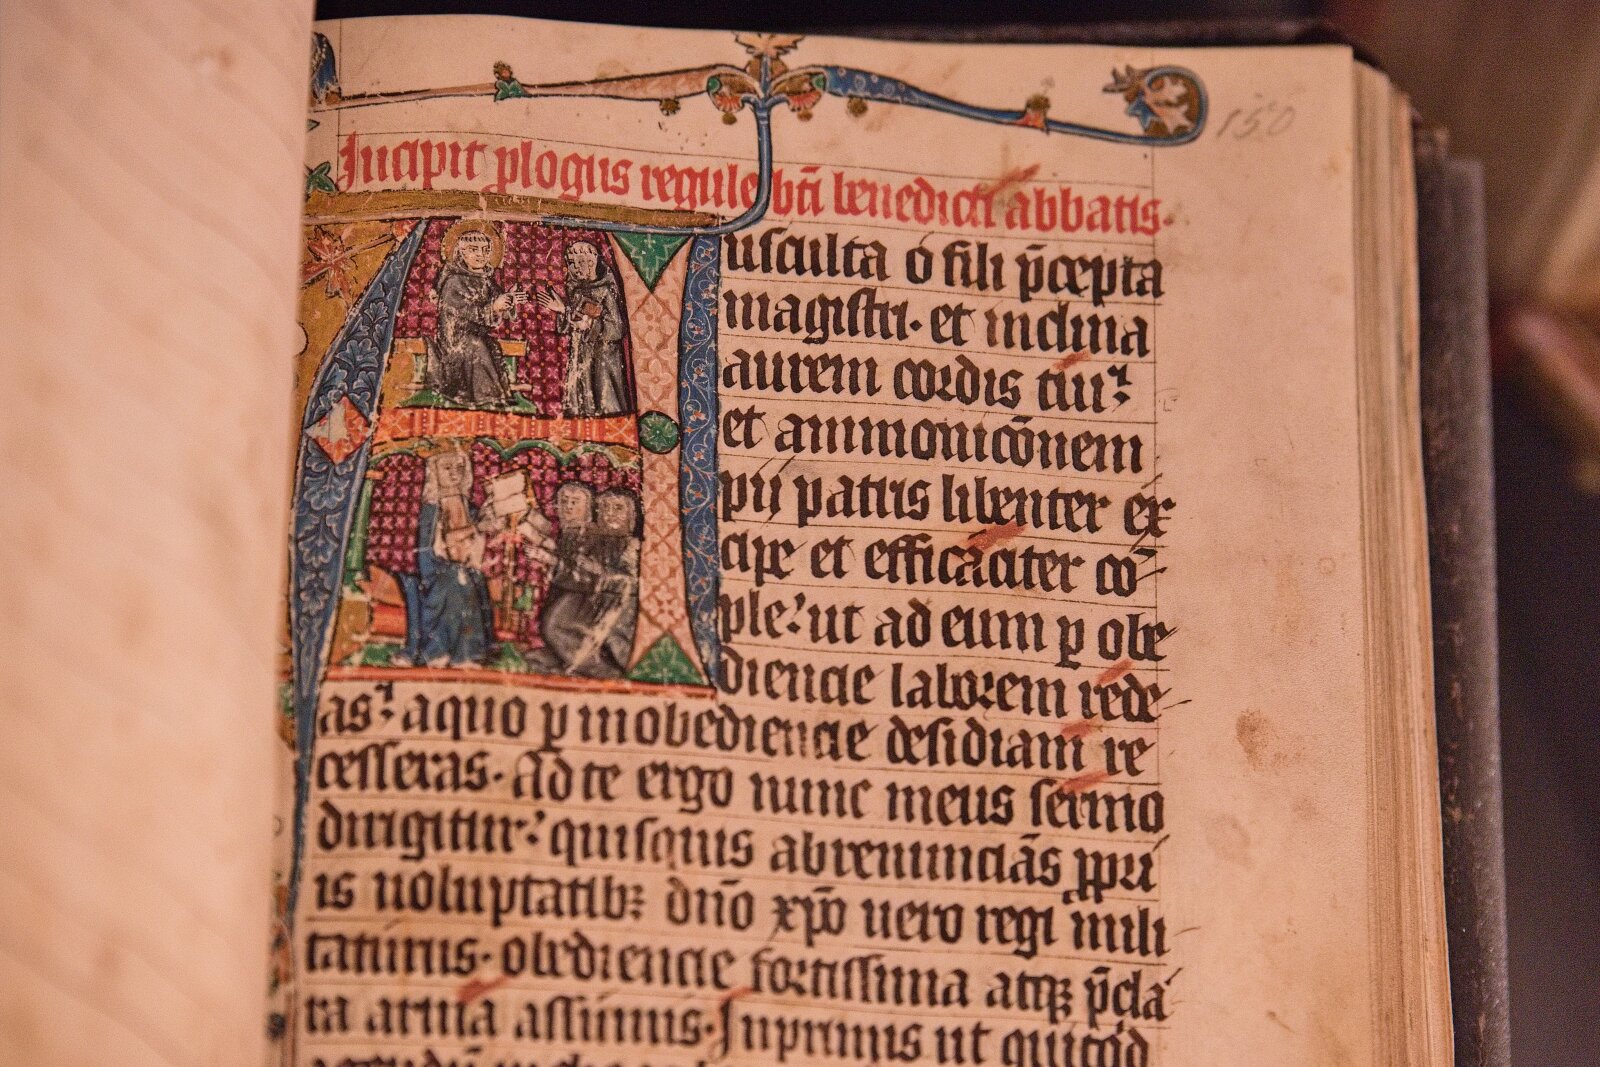 150
Incipit plogus regule bti benedicti abbatis.
Ausculta o fili p̄cepta
magistri. et inclina
aurem cordis tui:
et ammonicōnem
pij patris libenter ex
cipe et efficaciter cō
ple: ut ad eum p obe
diencie laborem rede
as: a quo p inobediencie desidiam re
cesseras. Ad te ergo nunc meus sermo
dirigitur: quisquis abrenunciās ppri
is uoluptatibꝫ dn̄o xp̄o uero regi mili
taturus. obediencie fortissima atqꝫ p̄cla
ra arma assumis. Inprimis ut quicqd